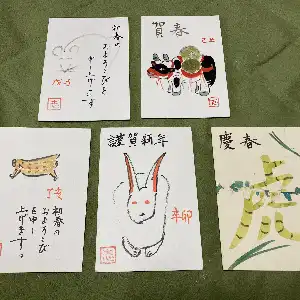 初春の
およろこびを
申し上げます
戊子
賀春
己丑
亥
初春の
およろこび
を申し
上げます。
謹賀新年
辛卯
慶春
虎